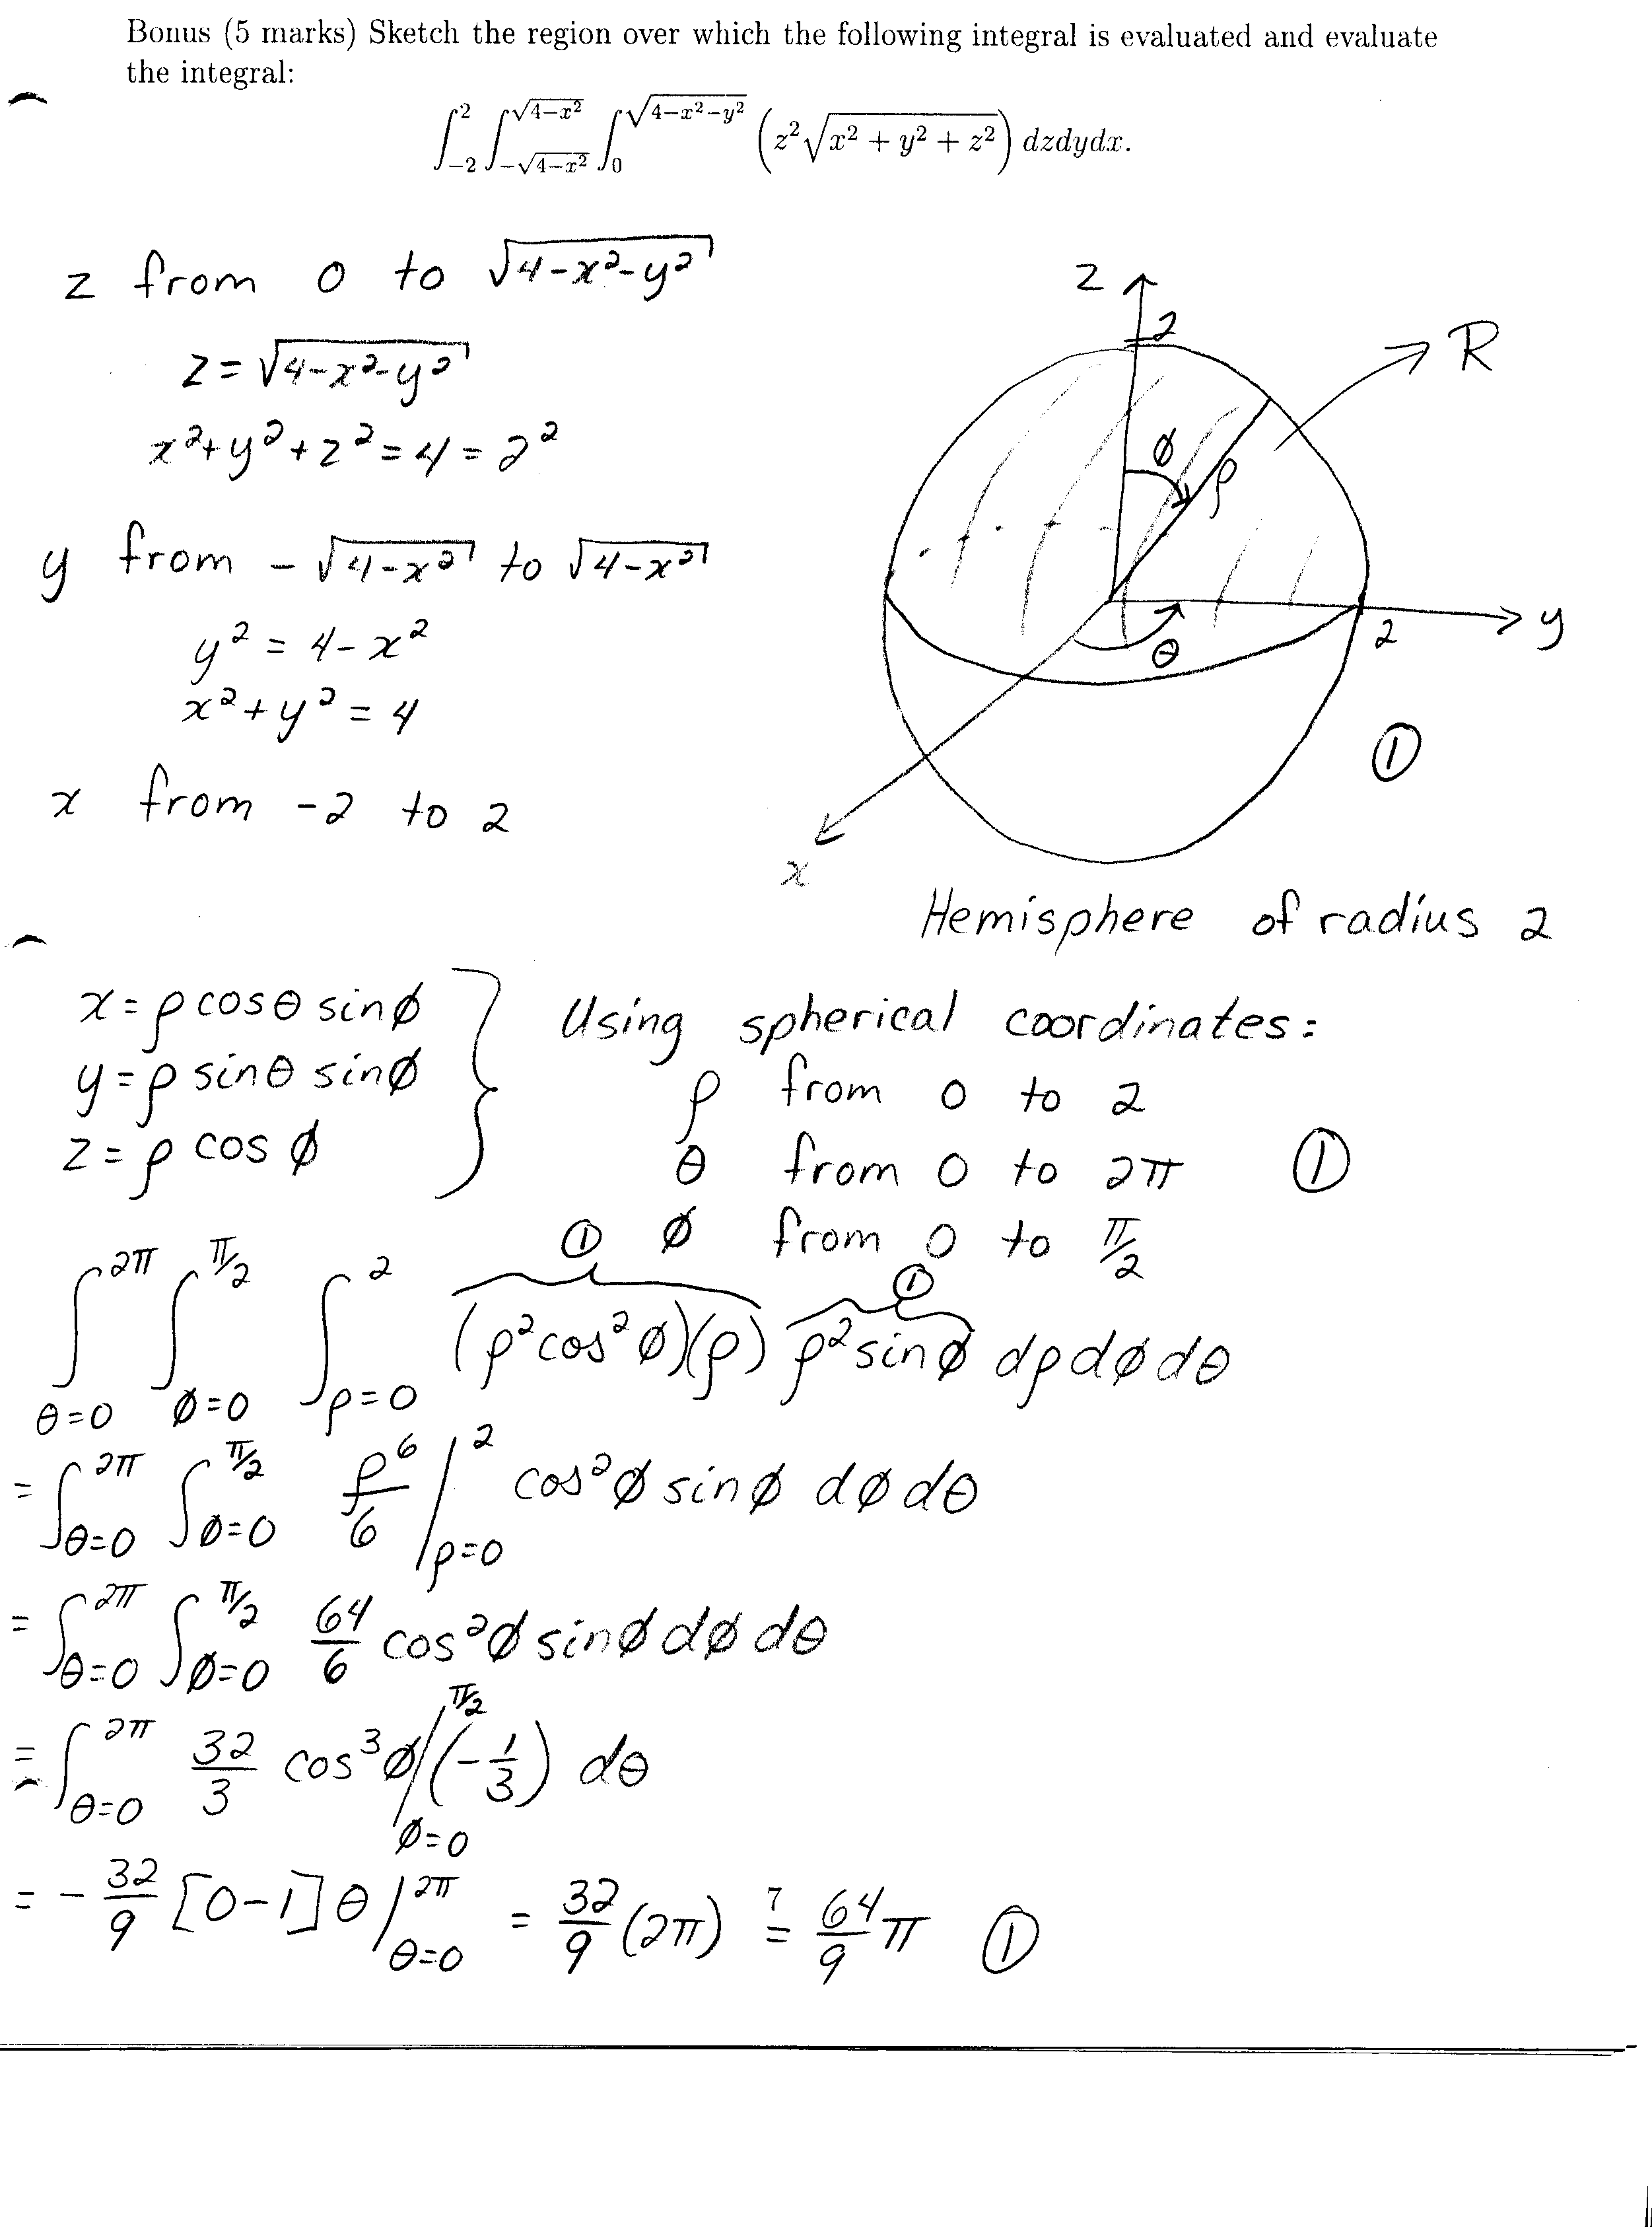 Bonus (5 marks) Sketch the region over which the following integral is evaluated and evaluate
the integral:
∫_{-2}^{2} ∫_{-√(4-x²)}^{√(4-x²)} ∫_{0}^{√(4-x²-y²)} (z²√(x² + y² + z²)) dzdydx.
z from 0 to √(4-x²-y²)
z = √(4-x²-y²)
x²+y²+z² = 4 = 2²
y from -√(4-x²) to √(4-x²)
y² = 4-x²
x²+y² = 4
x from -2 to 2
z
2
R
φ
ρ
θ
2
y
x
①
Hemisphere of radius 2
x = ρ cosθ sinφ
y = ρ sinθ sinφ
z = ρ cos φ
Using spherical coordinates:
ρ from 0 to 2
θ from 0 to 2π ①
φ from 0 to π/2
① ①
∫_{θ=0}^{2π} ∫_{φ=0}^{π/2} ∫_{ρ=0}^{2} (ρ²cos²φ)(ρ) ρ²sinφ dρdφdθ
= ∫_{θ=0}^{2π} ∫_{φ=0}^{π/2} ρ⁶/6 |_{ρ=0}^{2} cos²φ sinφ dφdθ
= ∫_{θ=0}^{2π} ∫_{φ=0}^{π/2} 64/6 cos²φ sinφ dφ dθ
= ∫_{θ=0}^{2π} 32/3 cos³φ |_{φ=0}^{π/2} (-1/3) dθ
= -32/9 [0-1] θ |_{θ=0}^{2π} = 32/9 (2π) = 64/9 π ①